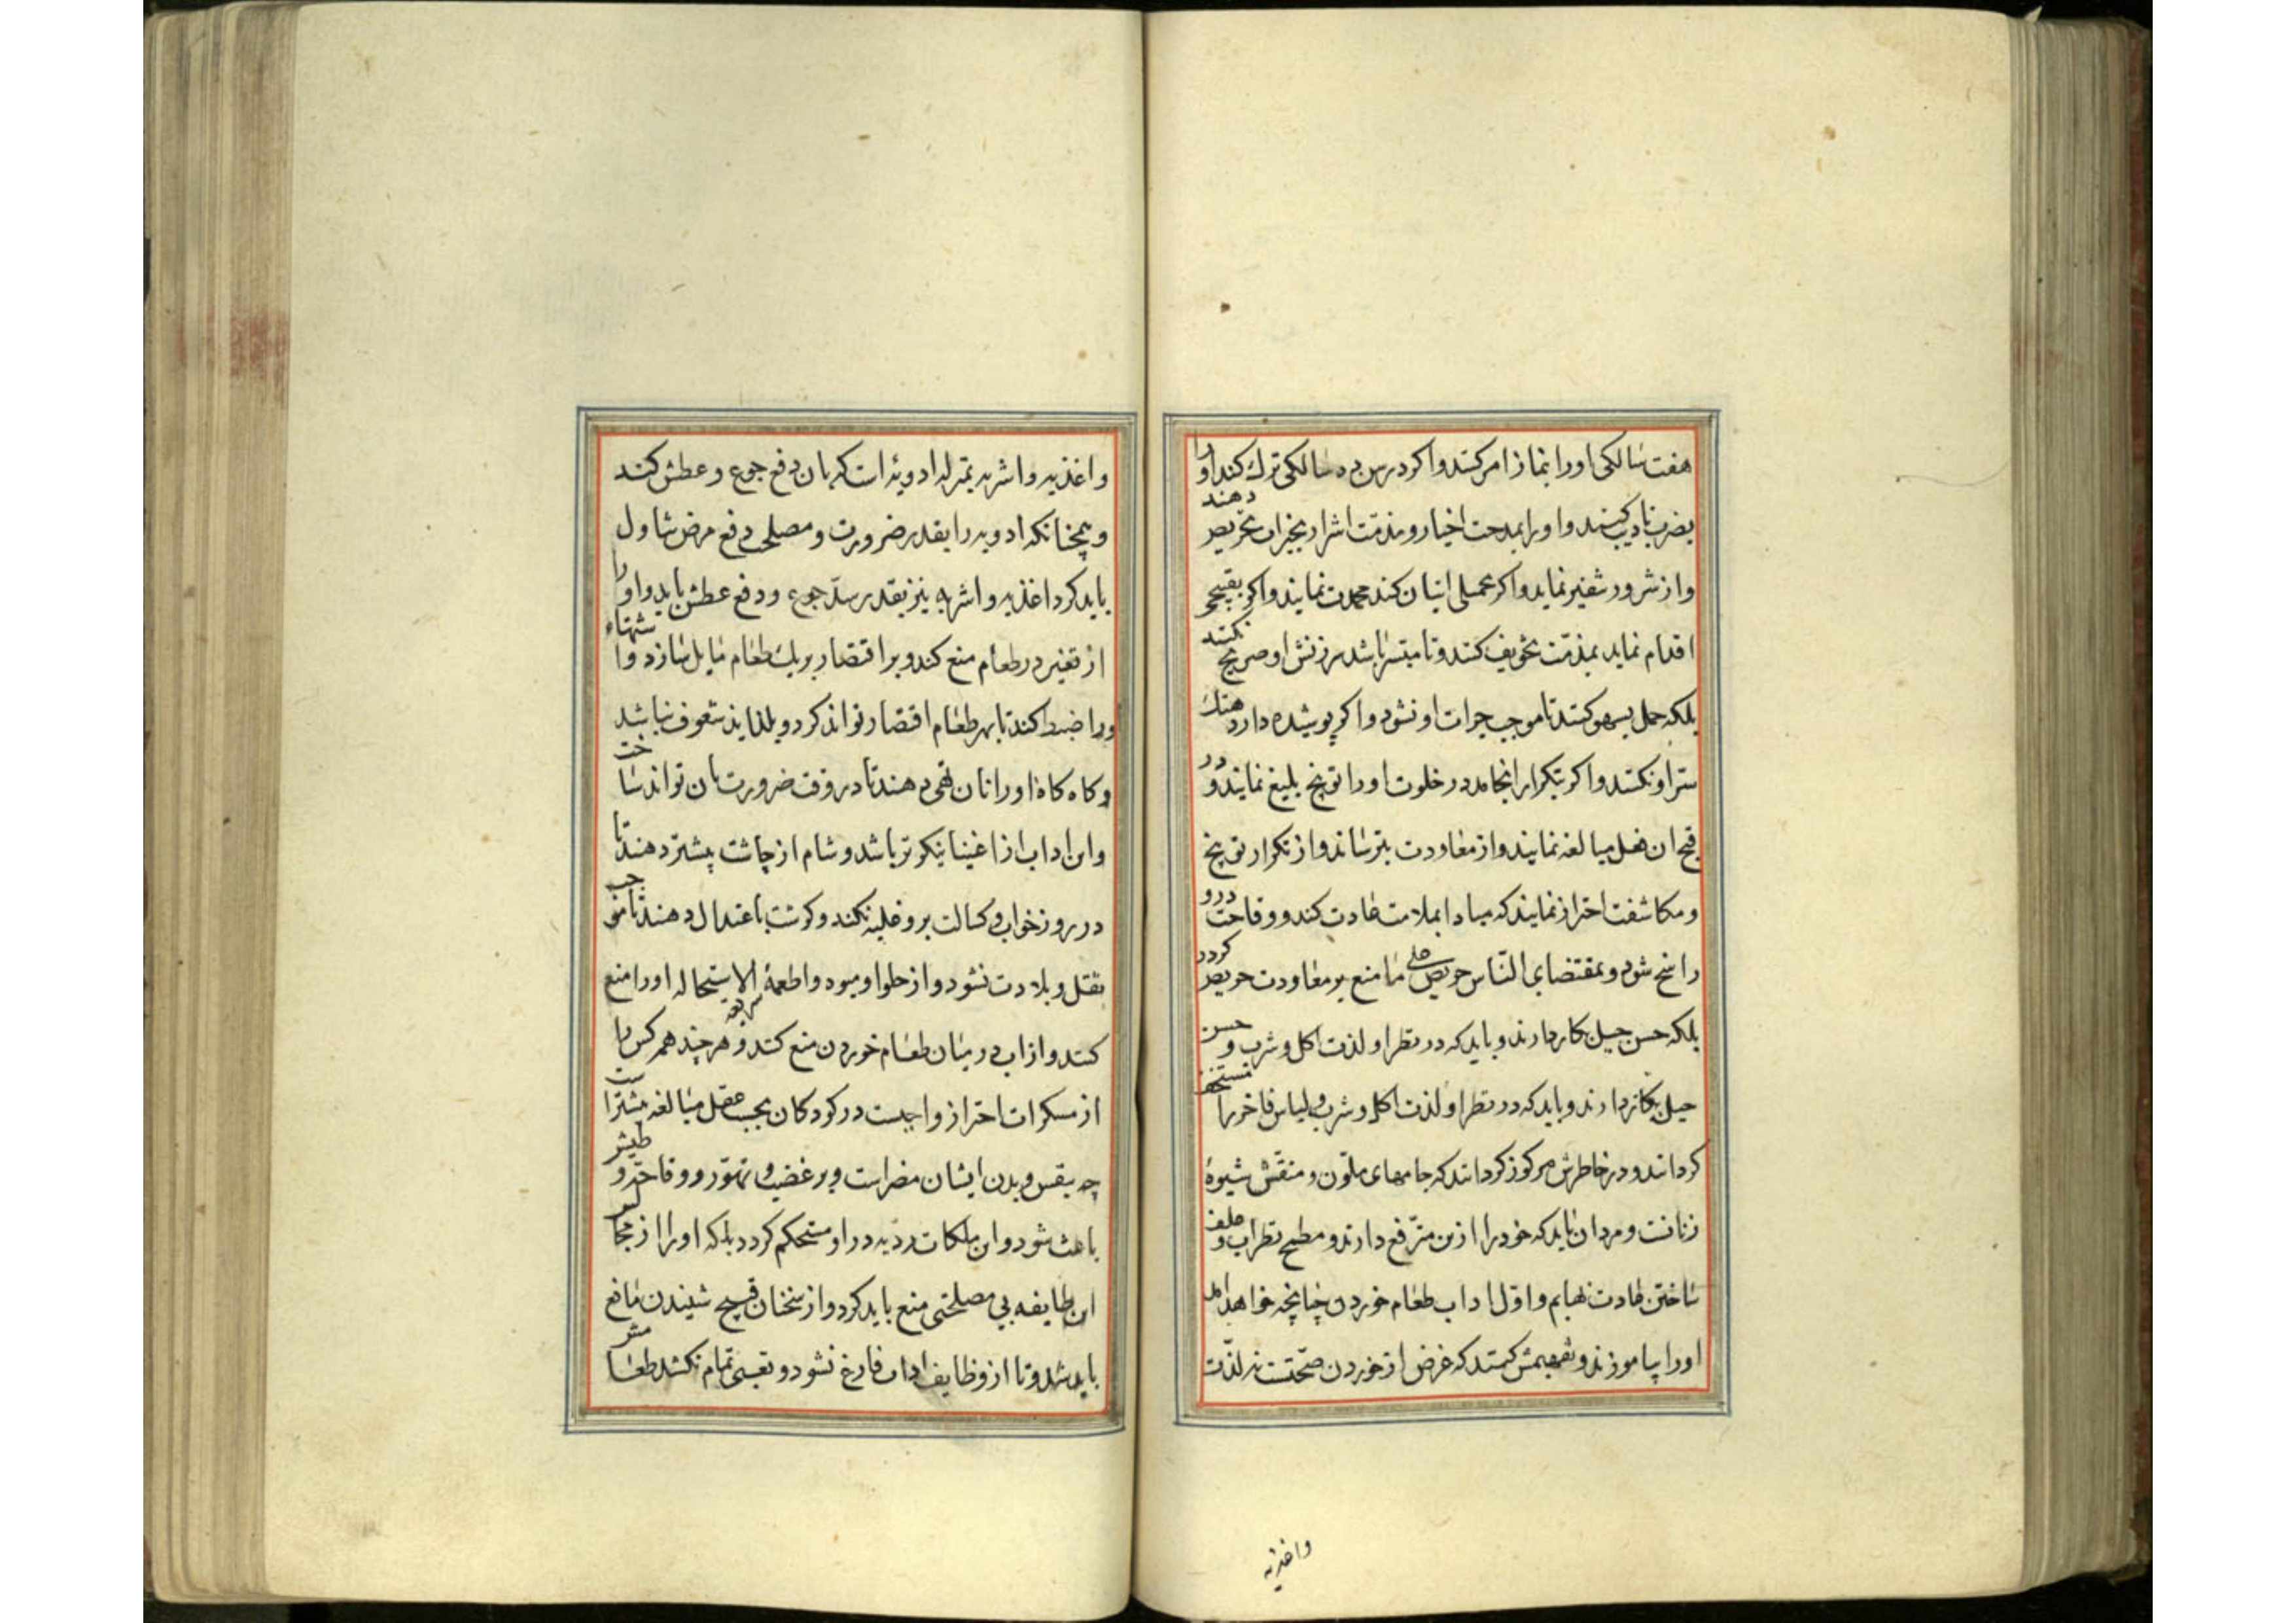 هفت سالکی او را بنماز امر کنند و اکر در سن ده سالکی ترك کند او را
بضرب تادیب کنند و او را بمدحت اخیار و مذمّت اشرار بخیرات تحریص دهند
و از شرور تنفیر نماید و اکر عملی اتیان کند محمدت نمایند و اکر بقبیحی
اقدام نماید بمذمّت تخویف کنند و تا میسّر باشد سرزنش او صریح نکنند
بلکه حمل بسهو کنند تا موجب جرات او نشود و اکر پوشیده دارد هتك
ستر او نکنند و اکر بتکرار انجامد در خلوت او را توبیخ بلیغ نمایند و در
قبح ان فعل مبالغه نمایند و از معاودت بترسانند و از تکرار توبیخ
و مکاشفت احتراز نمایند که مبادا بملامت عادت کند و وقاحت درو
راسخ شود و بمقتضای النّاس حریص علی ما منع بر معاودت حریص کردد
بلکه حسن حیل بکار دارند و باید که در نظر او لذت اکل و شرب و حسن
حیل بکار دارند و باید که در نظر او لذت اکل و شرب و لباس فاخر را مستحقر
کردانند و در خاطرش مرکوز کردانند که جامهای ملوّن و منقّش شیوهٔ
زنانست و مردان باید که خود را ازین مترّفع دارند و مطمح نظر اب و علف
ساختن عادت بهایم و اوّل اداب طعام خوردن چنانچه خواهد امد
او را بیاموزند و تفهیمش کنند که غرض از خوردن صحّتست نه لذّت
واغذیه
و اغذیه و اشربه بمنزله ادویه است که بان دفع جوع و عطش کنند
و همچنانکه ادویه را بقدر ضرورت و مصلحت دفع مرض تناول
باید کرد اغذیه و اشربه نیز بقدر سدّ جوع و دفع عطش باید و او را
از تغیر در طعام منع کند و بر اقتصار بر یك طعام مایل سازد و اشتهاء
ورا ضبط کند تا بهر طعام اقتصار تواند کرد و بلذایذ شعوف نباشد
و کاه کاه او را نان تهی دهند تا در وقت ضرورت بان تواند ساخت
و این اداب از اغنیا نیکوتر باشد و شام از چاشت بیشتر دهند تا
در روز خواب و کسالت برو غلبه نکند و کوشت باعتدال دهند تا موجب
ثقل و بلادت نشود و از حلوا و میوه و اطعمهٔ سریعه الاستحاله او را منع
کنند و از اب در میان طعام خوردن منع کنند و هر چند همه کس را
از مسکرات احتراز واجبست در کودکان بحسب عقل مبالغه بیشترست
چه بنفس و بدن ایشان مضر است و بر غضب و تهوّر و وقاحت و طیش
باعث شود و این ملکات ردیه در او مستحکم کردد بلکه او را از مجالس
ان طایفه بی مصلحتی منع باید کرد و از سخنان قبیح شنیدن مانع
باید شد و تا از وظایف اداب فارغ نشود و تعبی تمام نکشد طعامش